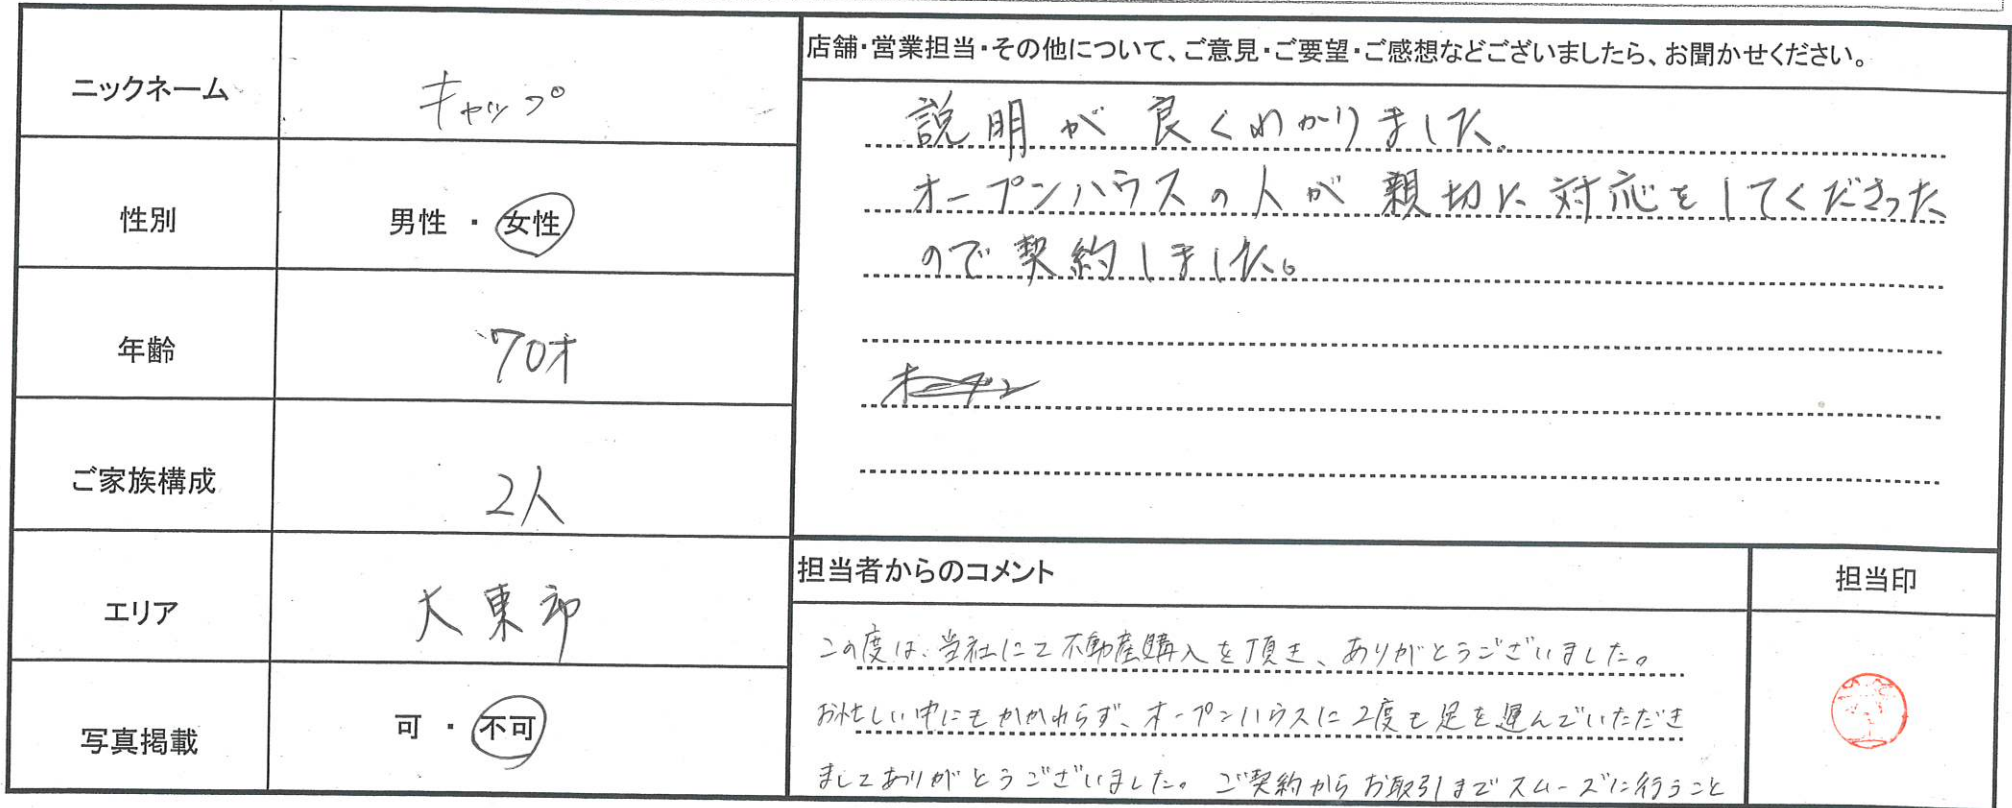 ニックネーム
キャップ
性別
男性 ・ 女性
年齢
70才
ご家族構成
2人
エリア
大東市
写真掲載
可 ・ 不可
店舗・営業担当・その他について、ご意見・ご要望・ご感想などございましたら、お聞かせください。
説明が良くわかりました。
オープンハウスの人が親切に対応をしてくださった
ので契約しました。
担当者からのコメント
担当印
この度は、当社にて不動産購入を頂き、ありがとうございました。
お忙しい中にもかかわらず、オープンハウスに2度も足を運んでいただき
ましてありがとうございました。ご契約からお取引までスムーズに行うこと